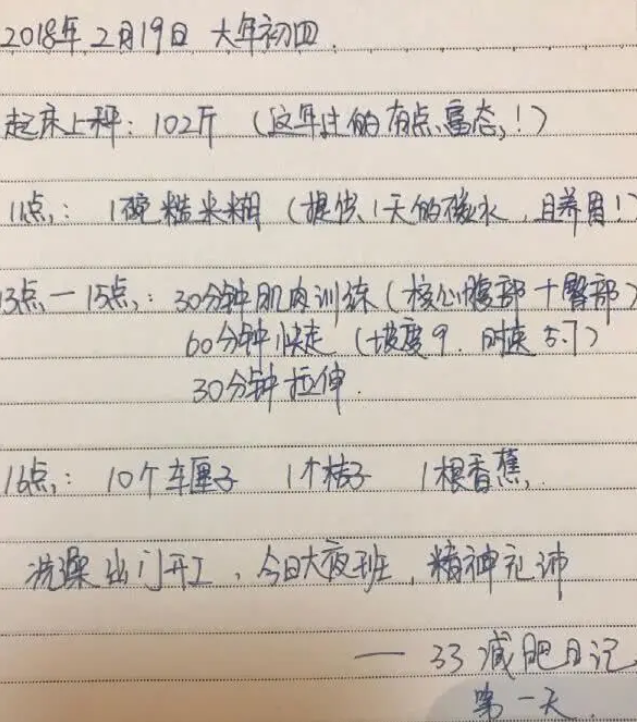 2018年2月19日 大年初四.
起床上秤: 102斤 (这年过的有点富态,!)
11点,: 1碗糙米糊 (提供1天的碳水, 且养胃!)
13点一15点,: 30分钟肌肉训练 (核心腹部+臀部)
60分钟快走 (坡度9. 时速5.7)
30分钟拉伸.
16点,: 10个车厘子 1个桔子 1根香蕉,.
洗澡出门开工, 今日大夜班, 精神充沛
— 33减肥日记
第一天